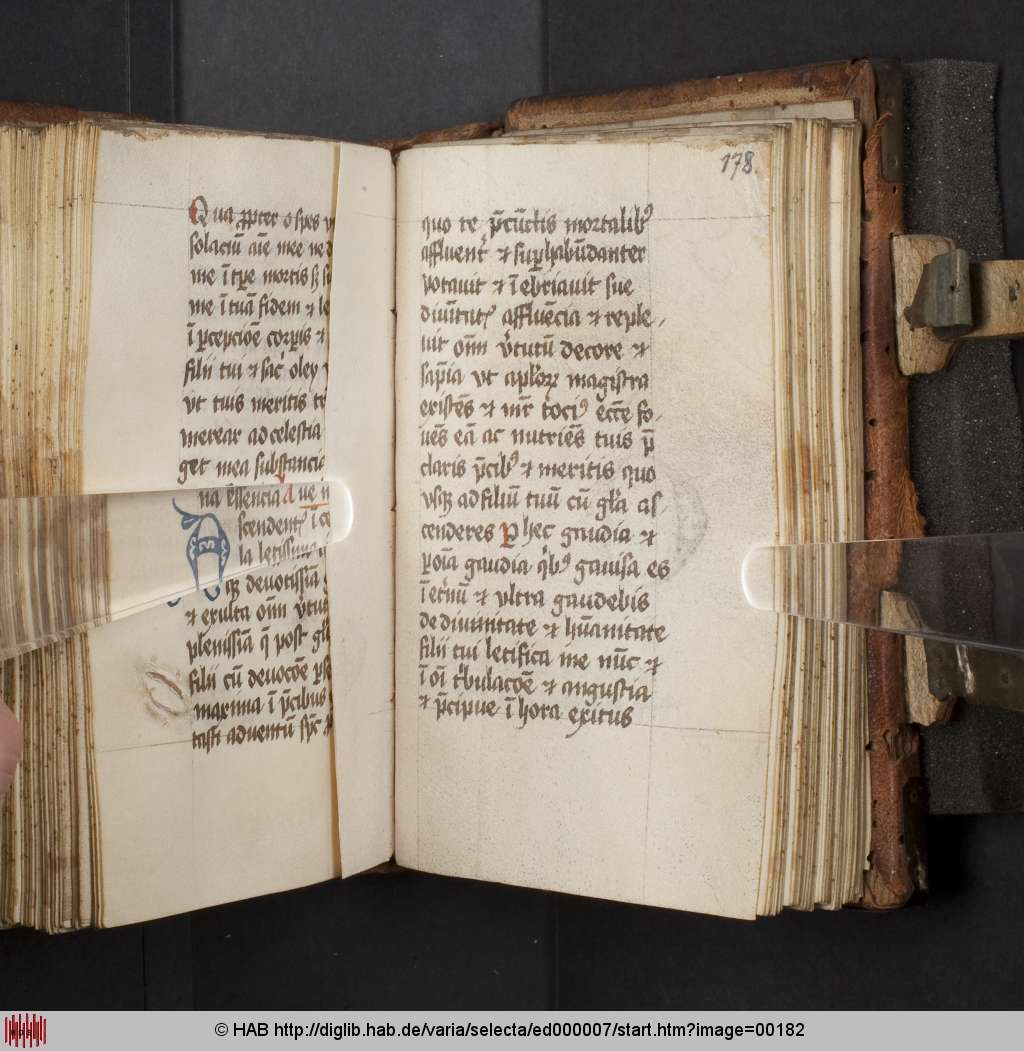 Qua ꝓpter o spes
solaciū aīe mee ne
me ī tꝑe mortis sꝫ
me ī tuā fidem ⁊
ī ꝑcepcioē corꝑis ⁊
filii tui ⁊ sac̄ oley
vt tuis meritis
merear ad celestia
get mea substancia
na essencia Aue
scendentꝫ ī
la letissima
qꝫ deuotissīa
⁊ exulta om̄ v̓tu
plenissīa q̄ post gl̓
filii cū deuocōe
maxima ī p̄cibus
tasti aduentū sp̄c
178.
quo te p̄cūctis mortalibꝰ
affluent̓ ⁊ suꝑhabūdanter
potauit ⁊ īebriauit sue
diuītatꝫ affluēcia ⁊ reple-
uit om̄ v̓tutū decore ⁊
sap̄ia vt apl̓oꝝ magistra
existēs ⁊ mr̄ tociꝰ ecc̄e fo-
uēs eā ac nutriēs tuis p̄
claris p̄cibꝰ ⁊ meritis quo
vsqꝫ ad filiū tuū cū gl̓a as-
cenderes Ꝑ hec gaudia ⁊
ꝑ oīa gaudia qͥbꝰ gauisa es
ī et̓nū ⁊ vltra gaudebis
de diuinitate ⁊ hūanitate
filii tui letifica me nūc ⁊
ī oī tͥbulacōe ⁊ angustia
⁊ p̄cipue ī hora exitus
© HAB http://diglib.hab.de/varia/selecta/ed000007/start.htm?image=00182